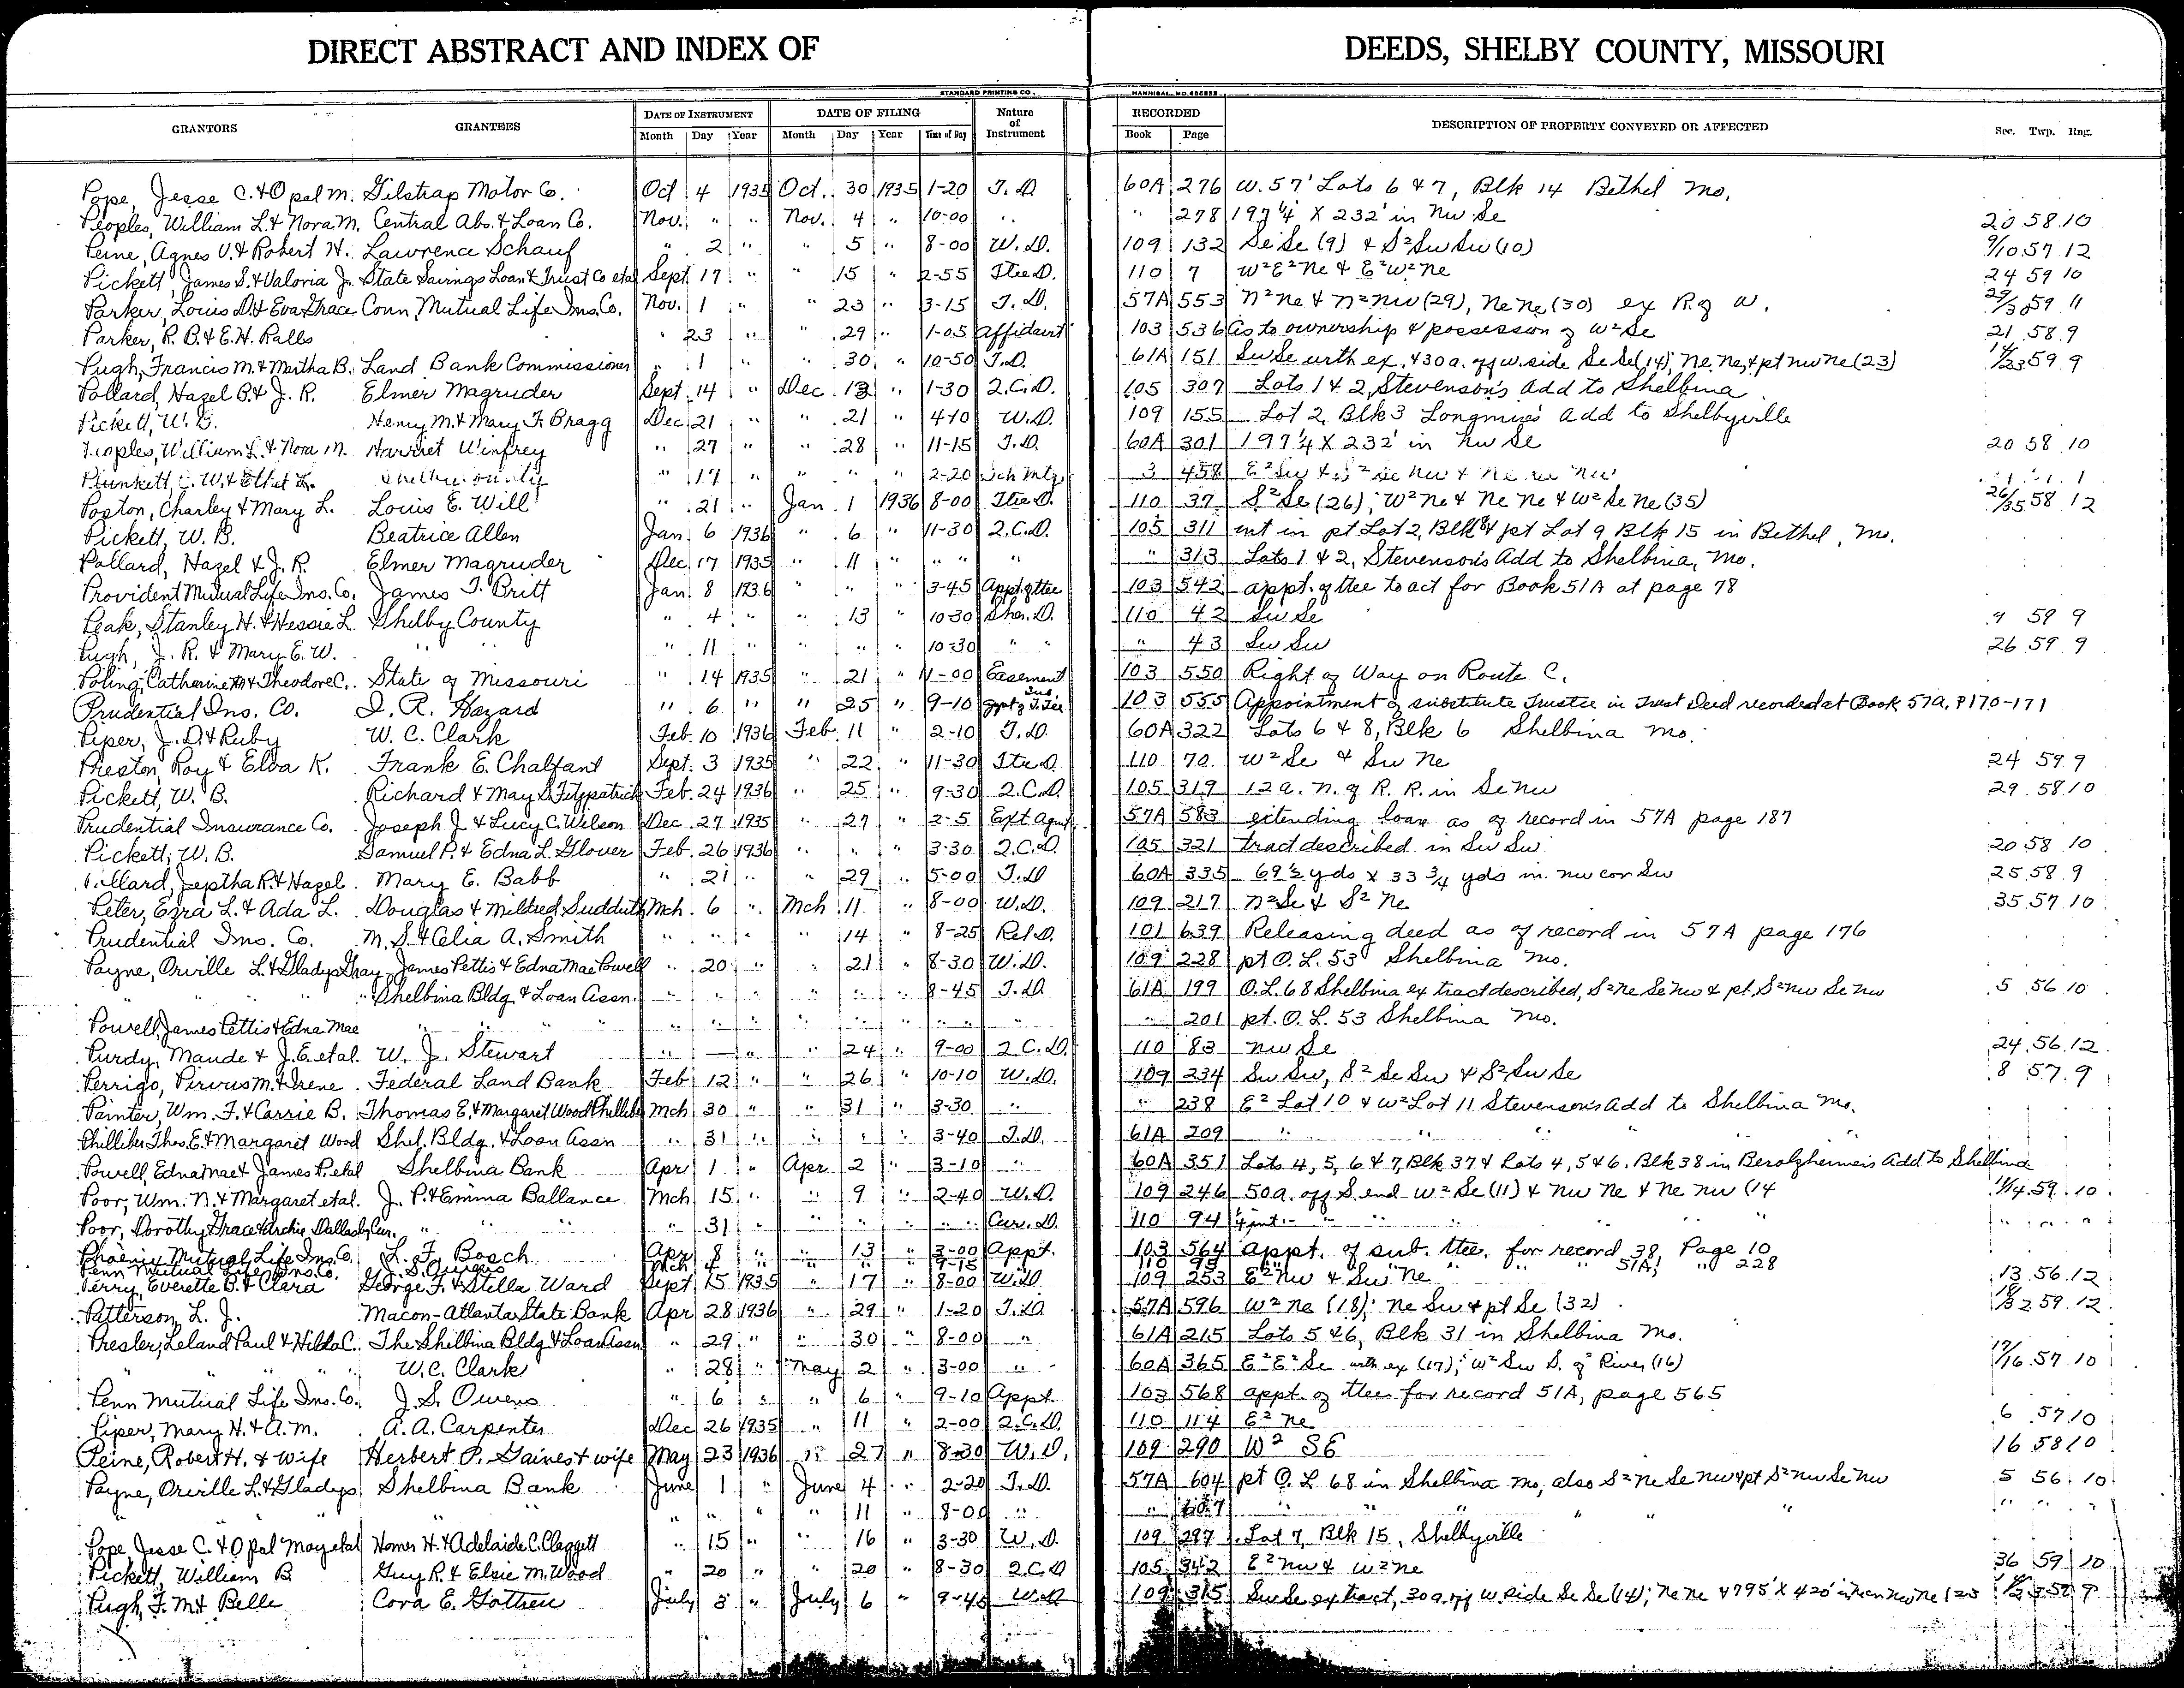 DIRECT ABSTRACT AND INDEX OF DEEDS, SHELBY COUNTY, MISSOURI
STANDARD PRINTING CO. HANNIBAL, MO.
GRANTORS GRANTEES DATE OF INSTRUMENT DATE OF FILING Nature of Instrument RECORDED DESCRIPTION OF PROPERTY CONVEYED OR AFFECTED Sec. Twp. Rng.
Month Day Year Month Day Year Time of Day Book Page
Pope, Jesse C. & Opal M. Gilstrap Motor Co. Oct 4 1935 Oct. 30 1935 1-20 T. D. 60A 276 W. 57' Lots 6 & 7, Blk 14 Bethel Mo.
Peoples, William L. & Nora M. Central Abs. & Loan Co. Nov. " " Nov. 4 " 10-00 " " 278 197¼' X 232' in NW Se 20 58 10
Peine, Agnes V. & Robert H. Lawrence Schauf " 2 " " 5 " 8-00 W. D. 109 132 Se Se (9) & S² Sw Sw (10) 9/10 57 12
Pickett, James S. & Valoria J. State Savings Loan & Trust Co etal Sept. 17 " " 15 " 2-55 Ttee D. 110 7 W² E² Ne & E² W² Ne 24 59 10
Parker, Louis D. & Eva Grace Conn. Mutual Life Ins. Co. Nov. 1 " " 23 " 3-15 T. D. 57A 553 N² Ne & N² NW (29), Ne Ne (30) ex R. of W. 29/30 59 11
Parker, R. B. & E. H. Ralls " 23 " " 29 " 1-05 Affidavit 103 536 As to ownership & possesson of W² Se 21 58 9
Pugh, Francis M. & Martha B. Land Bank Commissioner " 1 " " 30 " 10-50 T. D. 61A 151 Sw Se with ex. & 30 a. off w. side Se Se (14); Ne Ne, & pt NW Ne (23) 14/23 59 9
Pollard, Hazel B. & J. R. Elmer Magruder Sept. 14 " Dec 13 " 1-30 2. C. D. 105 307 Lots 1 & 2, Stevenson's Add to Shelbina
Pickett, W. B. Henry M. & Mary F. Bragg Dec 21 " " 21 " 4-10 W. D. 109 155 Lot 2, Blk 3 Longmire's Add to Shelbyville
Peoples, William L. & Nora M. Harriet Winfrey " 27 " " 28 " 11-15 T. D. 60A 301 197¼ X 232' in NW Se 20 58 10
Plunkett, C. W. & Ethel L. Shelby County " 17 " " " " 2-20 Sch Mtg. 3 458 E² Sw & S² Se NW & Ne Se NW
Poston, Charley & Mary L. Louis E. Will " 21 " Jan 1 1936 8-00 Ttee D. 110 37 S² Se (26); W² Ne & Ne Ne & W² Se Ne (35) 26/35 58 12
Pickett, W. B. Beatrice Allen Jan 6 1936 " 6 " 11-30 2. C. D. 105 311 int in pt Lot 2, Blk 8 & pt Lot 9, Blk 15 in Bethel, Mo.
Pollard, Hazel & J. R. Elmer Magruder Dec 17 1935 " 11 " " " " " 313 Lots 1 & 2, Stevenson's Add to Shelbina, Mo.
Provident Mutual Life Ins. Co. James T. Britt Jan 8 1936 " " " 3-45 Appt. of ttee 103 542 appt. of ttee to act for Book 51A at page 78
Peak, Stanley H. & Hessie L. Shelby County " 4 " " 13 " 10-30 Sher. D. 110 42 Sw Se 9 59 9
Pugh, J. R. & Mary E. W. " " " 11 " " " " 10-30 " " " 43 Sw Sw 26 59 9
Poling, Catherine M & Theodore C. State of Missouri " 14 1935 " 21 " 11-00 Easement 103 550 Right of Way on Route C.
Prudential Ins. Co. I. R. Hazard " 6 " " 25 " 9-10 Appt of Sub. T. Tee 103 555 Appointment of substitute Trustee in Trust Deed recorded at Book 57A, P 170-171
Piper, J. D. & Ruby W. C. Clark Feb. 10 1936 Feb. 11 " 2-10 T. D. 60A 322 Lots 6 & 8, Blk 6 Shelbina Mo.
Preston, Roy & Elva K. Frank E. Chalfant Sept. 3 1935 " 22 " 11-30 Ttee D. 110 70 W² Se & Sw Ne 24 59 9
Pickett, W. B. Richard & May S. Fitzpatrick Feb. 24 1936 " 25 " 9-30 2. C. D. 105 319 12 a. N. of R. R. in Se NW 29 58 10
Prudential Insurance Co. Joseph J. & Lucy C. Wilson Dec. 27 1935 " 27 " 2-5 Ext Agmt. 57A 583 extending loan as of record in 57A page 187
Pickett, W. B. Samuel P. & Edna L. Glover Feb 26 1936 " " " 3-30 2. C. D. 105 321 tract described in Sw Sw 20 58 10
Pollard, Jeptha R. & Hazel Mary E. Babb " 21 " " 29 " 5-00 T. D 60A 335 69½ yds x 33¾ yds in NW cor Sw 25 58 9
Peter, Ezra L. & Ada L. Douglas & Mildred Sudduth Mch 6 " Mch 11 " 8-00 W. D. 109 217 N² Se & S² Ne 35 57 10
Prudential Ins. Co. M. S. & Celia A. Smith " " " " 14 " 8-25 Rel D. 101 639 Releasing deed as of record in 57A page 176
Payne, Orville L. & Gladys Gray James Pettis & Edna Mae Powell " 20 " " 21 " 8-30 W. D. 109 228 pt O. L. 53 Shelbina Mo.
" " " Shelbina Bldg. & Loan Assn. " " " " " " 8-45 T. D. 61A 199 O. L. 68 Shelbina ex tract described, S² Ne Se NW & pt. S² NW Se NW 5 56 10
Powell, James Pettis & Edna Mae " " " " " " " " " " " " " 201 pt. O. L. 53 Shelbina Mo.
Purdy, Maude & J. E. etal. W. J. Stewart " — " " 24 " 9-00 2 C. D. 110 83 NW Se 24 56 12
Perrigo, Pirvus M. & Irene Federal Land Bank Feb 12 " " 26 " 10-10 W. D. 109 234 Sw Sw, S² Se Sw & S² Sw Se 8 57 9
Painter, Wm. F. & Carrie B. Thomas E. & Margaret Wood Phillibe Mch 30 " " 31 " 3-30 " " 238 E² Lot 10 & W² Lot 11 Stevenson's Add to Shelbina Mo.
Philliber Thos. E. & Margaret Wood Shel. Bldg. & Loan Assn " 31 " " " " 3-40 T. D. 61A 209 " " " "
Powell, Edna Mae & James P. etal Shelbina Bank Apr 1 " Apr 2 " 3-10 " 60A 351 Lots 4, 5, 6 & 7, Blk 37 & Lots 4, 5 & 6, Blk 38 in Berolzheimer's Add to Shelbina
Poor, Wm. N. & Margaret etal. J. P. & Emma Ballance Mch 15 " " 9 " 2-40 W. D. 109 246 50 a. off S. end W² Se (11) & NW Ne & Ne NW (14 11/14 59 10
Poor, Dorothy Grace & Archie Dallas by Cur. " " " " 31 " " " " " Cur. D. 110 94 ¼ int. " " " " " " "
Phoenix Mutual Life Ins. Co. L. F. Bosch Apr 8 " " 13 " 3-00 Appt. 103 564 appt. of sub. ttee. for record 38, Page 10
Penn Mutual Life Ins. Co. J. S. Owens Mch " 9-15 " 51A, " 228
Perry, Everette B. & Clara George F. & Stella Ward Sept 15 1935 " 17 " 8-00 W. D 109 253 E² NW & Sw Ne 13 56 12
Patterson, L. J. Macon-Atlanta State Bank Apr 28 1936 " 29 " 1-20 T. D. 57A 596 W² Ne (18); Ne Sw & pt Se (32) 18/32 59 12
Presler, Leland Paul & Hilda C. The Shelbina Bldg & Loan Assn " 29 " " 30 " 8-00 " 61A 215 Lots 5 & 6, Blk 31 in Shelbina Mo.
" " " W. C. Clark " 28 " May 2 " 3-00 " 60A 365 E² E² Se with ex (17); W² Sw S. of River (16) 17/16 57 10
Penn Mutual Life Ins. Co. J. S. Owens " 6 " " 6 " 9-10 Appt. 103 568 appt. of ttee for record 51A, page 565
Piper, Mary H. & A. M. A. A. Carpenter Dec 26 1935 " 11 " 2-00 2. C. D. 110 114 E² Ne 6 57 10
Peine, Robert H. & wife Herbert P. Gaines & wife May 23 1936 " 27 " 8-30 W. D. 109 290 W² SE 16 58 10
Payne, Orville L. & Gladys Shelbina Bank June 1 " June 4 " 2-20 T. D. 57A 604 pt O. L 68 in Shelbina Mo, also S² Ne Se NW & pt S² NW Se NW 5 56 10
" " " 11 " 8-00 " " 607 " " " " " " "
Pope Jesse C. & Opal May etal Homer H. & Adelaide C. Claggett " 15 " " 16 " 3-30 W. D. 109 297 Lot 7, Blk 15, Shelbyville
Pickett, William B. Guy R. & Elsie M. Wood " 20 " " 20 " 8-30 2. C. D 105 342 E² NW & W² Ne 36 59 10
Pugh, F. M. & Belle Cora E. Gottren July 3 " July 6 " 9-45 W. D 109 315 Sw Se ex tract, 30 a. off w. side Se Se (14); Ne Ne & 795' X 420'